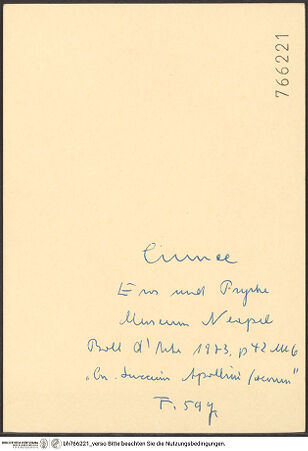 766221
Cumae
Eros und Psyche
Museum Neapel
Boll d'Arte 1973, p 42
"Cn. Lucceius Apollini sacrum"
F. 597
bh766221_verso Bitte beachten Sie die Nutzungsbedingungen.